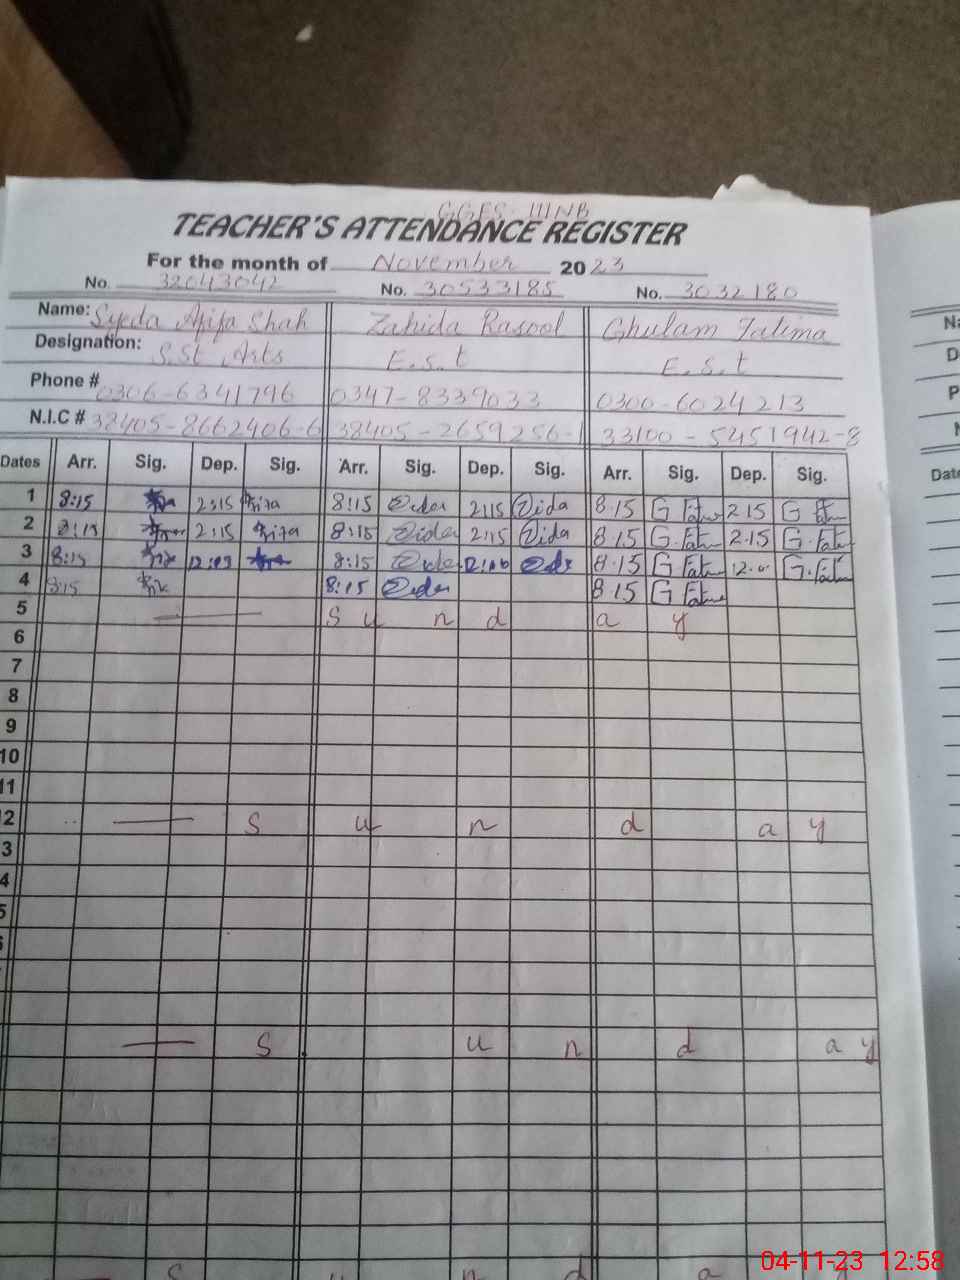 GGES 111NB
TEACHER'S ATTENDANCE REGISTER
For the month of November 2023
No. 32043042 No. 30533185 No. 3032180
Name: Syeda Afifa Shah Zahida Rasool Ghulam Fatima
Designation: S.St Arts E.S.t E.S.t
Phone # 0306-6341796 0347-8339033 0300-6024213
N.I.C # 38405-8662406-6 38405-2659256-1 33100-5451942-8
Dates Arr. Sig. Dep. Sig. Arr. Sig. Dep. Sig. Arr. Sig. Dep. Sig.
1 8:15 2:15 8:15 2:15 8.15 G Fatima 2.15 G
2 8:15 2:15 8:15 2:15 8.15 G.Fatima 2.15 G.Fatima
3 8:15 8:15 8.15 G Fatima G.Fatima
4 8:15 8:15 8.15 G Fatima
5 S u n d a y
6
7
8
9
10
11
2 S u n d a y
3
4
5
S u n d a y
S u n d a
Na
D
P
N
Date
04-11-23 12:58